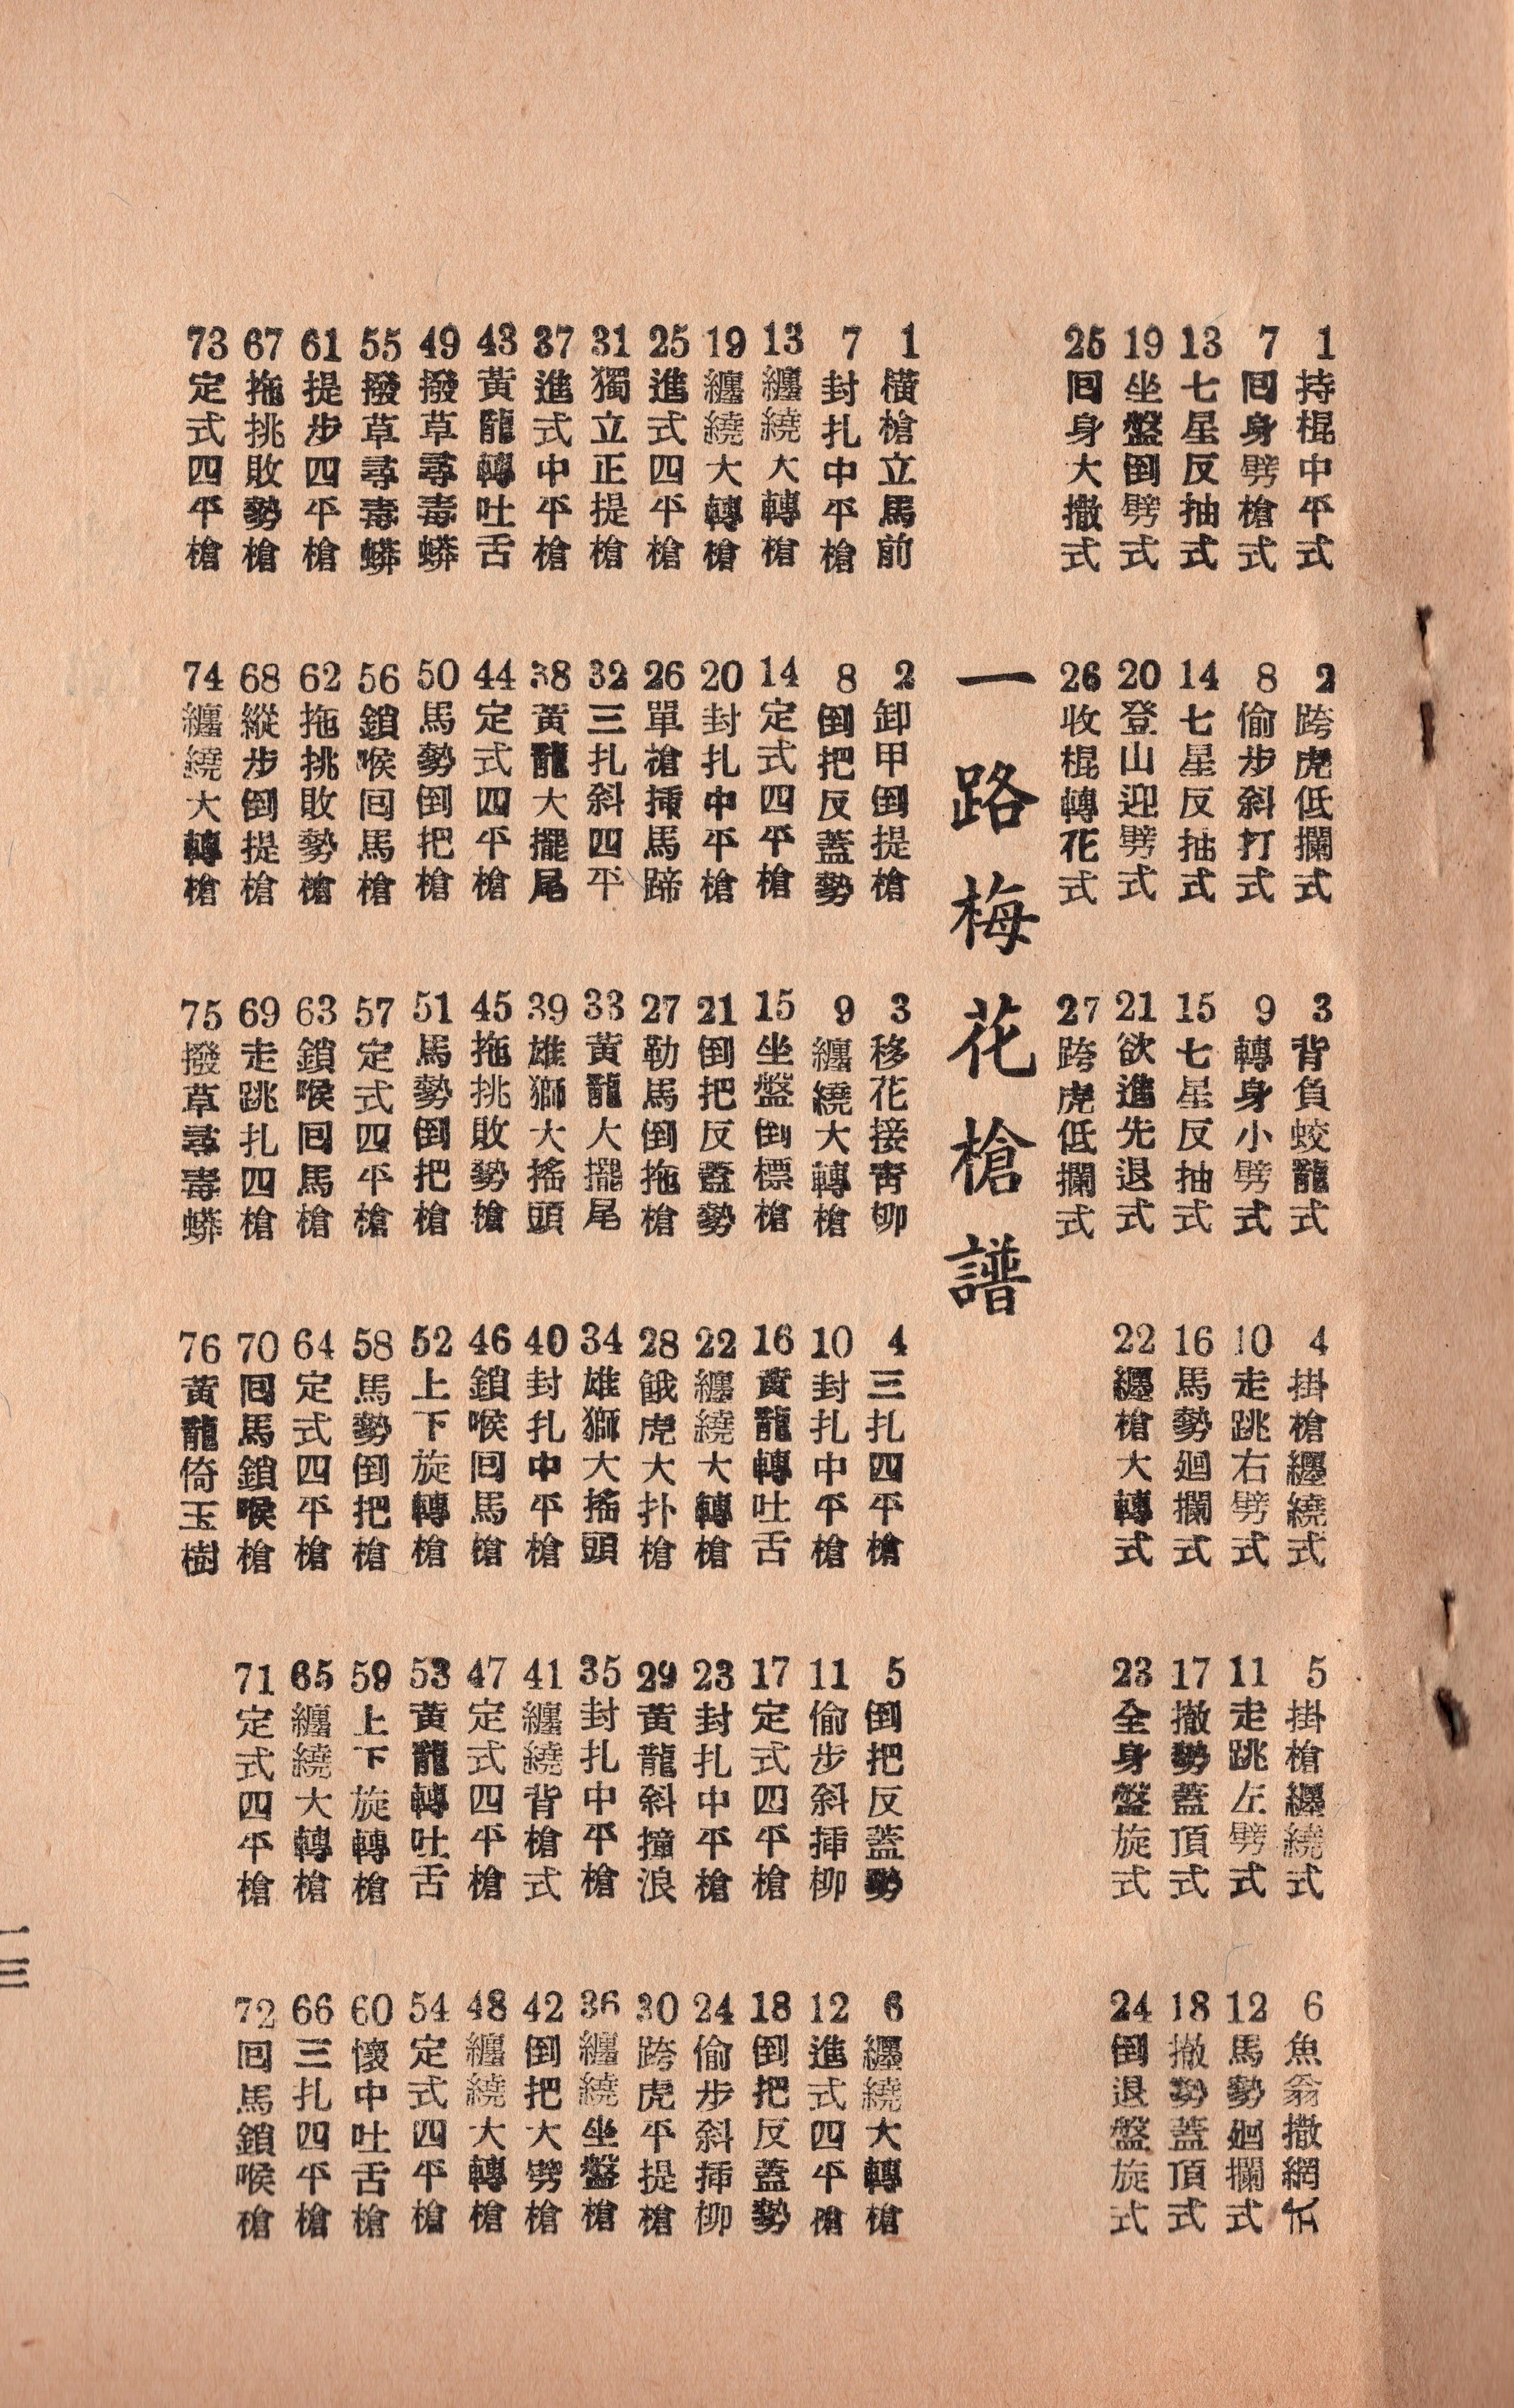 1 持棍中平式
2 跨虎低攔式
3 背負蛟龍式
4 掛槍纒繞式
5 掛槍纒繞式
6 魚翁撒網式
7 回身劈槍式
8 偷步斜打式
9 轉身小劈式
10 走跳右劈式
11 走跳左劈式
12 馬勢廻攔式
13 七星反抽式
14 七星反抽式
15 七星反抽式
16 馬勢廻攔式
17 撤勢蓋頂式
18 撤勢蓋頂式
19 坐盤倒劈式
20 登山迎劈式
21 欲進先退式
22 纒槍大轉式
23 全身盤旋式
24 倒退盤旋式
25 回身大撒式
26 收棍轉花式
27 跨虎低攔式
一路梅花槍譜
1 橫槍立馬前
2 卸甲倒提槍
3 移花接靑柳
4 三扎四平槍
5 倒把反蓋勢
6 纒繞大轉槍
7 封扎中平槍
8 倒把反蓋勢
9 纏繞大轉槍
10 封扎中平槍
11 偷步斜揷柳
12 進式四平槍
13 纏繞大轉槍
14 定式四平槍
15 坐盤倒標槍
16 黃龍轉吐舌
17 定式四平槍
18 倒把反蓋勢
19 纏繞大轉槍
20 封扎中平槍
21 倒把反蓋勢
22 纏繞大轉槍
23 封扎中平槍
24 偷步斜揷柳
25 進式四平槍
26 單槍揷馬蹄
27 勒馬倒拖槍
28 餓虎大扑槍
29 黃龍斜撞浪
30 跨虎平提槍
31 獨立正提槍
32 三扎斜四平
33 黃龍大擺尾
34 雄獅大搖頭
35 封扎中平槍
36 纏繞坐盤槍
37 進式中平槍
38 黃龍大擺尾
39 雄獅大搖頭
40 封扎中平槍
41 纏繞背槍式
42 倒把大劈槍
43 黃龍轉吐舌
44 定式四平槍
45 拖挑敗勢槍
46 鎖喉回馬槍
47 定式四平槍
48 纏繞大轉槍
49 撥草尋毒蟒
50 馬勢倒把槍
51 馬勢倒把槍
52 上下旋轉槍
53 黃龍轉吐舌
54 定式四平槍
55 撥草尋毒蟒
56 鎖喉回馬槍
57 定式四平槍
58 馬勢倒把槍
59 上下旋轉槍
60 懷中吐舌槍
61 提步四平槍
62 拖挑敗勢槍
63 鎖喉回馬槍
64 定式四平槍
65 纏繞大轉槍
66 三扎四平槍
67 拖挑敗勢槍
68 縱步倒提槍
69 走跳扎四槍
70 回馬鎖喉槍
71 定式四平槍
72 回馬鎖喉槍
73 定式四平槍
74 纏繞大轉槍
75 撥草尋毒蟒
76 黃龍倚玉樹
一三